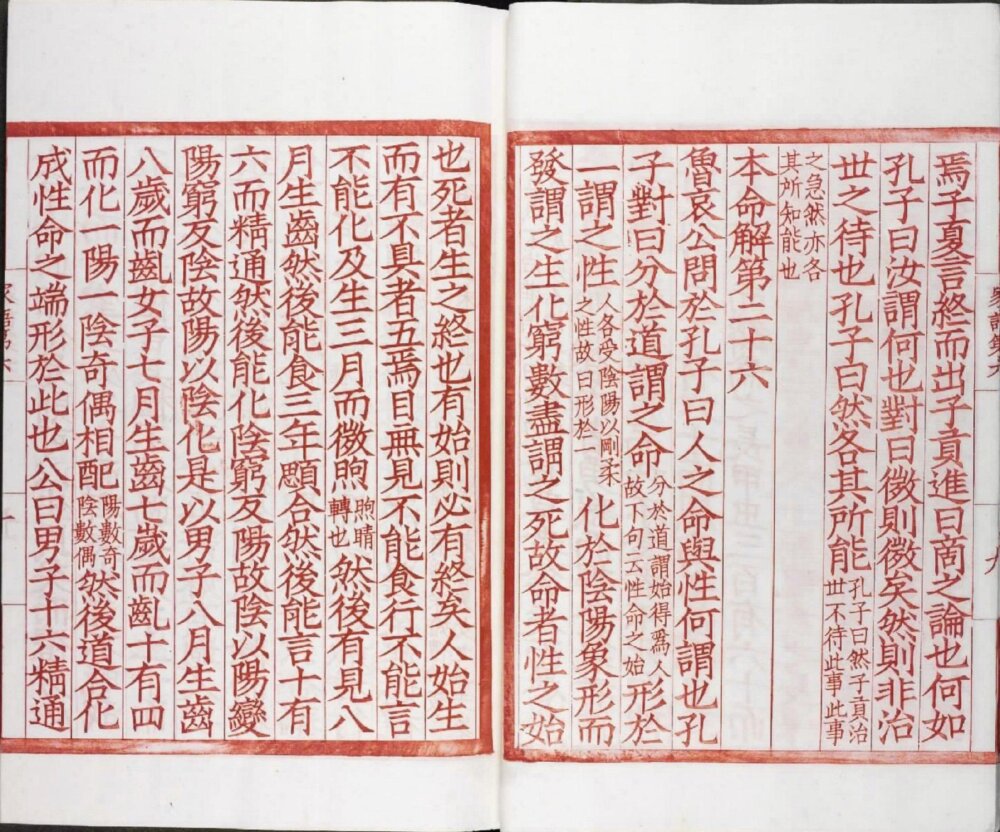 焉子夏言終而出子貢進曰商之論也何如
孔子曰汝謂何也對曰微則微矣然則非治
世之待也孔子曰然各其所能孔子曰然子貢治世不待此事此事
之急然亦各其所知能也
本命解第二十六
魯哀公問於孔子曰人之命與性何謂也孔
子對曰分於道謂之命分於道謂始得爲人故下句云性命之始形於
一謂之性人各受陰陽以剛柔之性故曰形於一化於陰陽象形而
發謂之生化窮數盡謂之死故命者性之始
也死者生之終也有始則必有終矣人始生
而有不具者五焉目無見不能食行不能言
不能化及生三月而微煦煦睛轉也然後有見八
月生齒然後能食三年顋合然後能言十有
六而精通然後能化陰窮反陽故陰以陽變
陽窮反陰故陽以陰化是以男子八月生齒
八歲而齓女子七月生齒七歲而齓十有四
而化一陽一陰奇偶相配陽數奇陰數偶然後道合化
成性命之端形於此也公曰男子十六精通